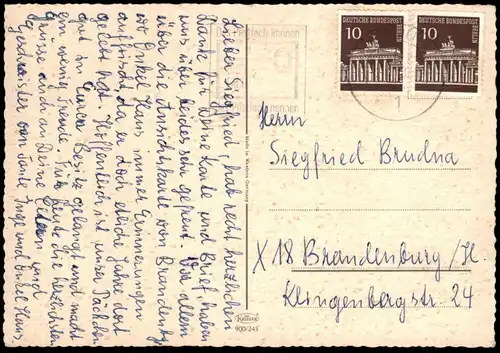 Lieber Siegfried, hab recht herzlichen
Dank für Deine Karte und Brief, haben
uns über beides sehr gefreut. Vor allem
über die Ansichtskarte von Brandenbg.
wo Onkel Hans immer Erinnerungen
auffrischt, da er doch etliche Jahre dort
gelebt hat. Hoffentlich ist unser Päckchen
gut in Euren Besitz gelangt und macht
ein wenig Freude. Für heute die herzlichsten
Grüsse auch an Deine Eltern und
Geschwister von Tante Inge und Onkel Hans.
können
nennen
Made in Western Germany
KRÜGER
900/245
10
DEUTSCHE BUNDESPOST
BERLIN
10
DEUTSCHE BUNDESPOST
BERLIN
1
Herrn
Siegfried Brudna
X 18 Brandenburg/H.
Klingenbergstr. 24